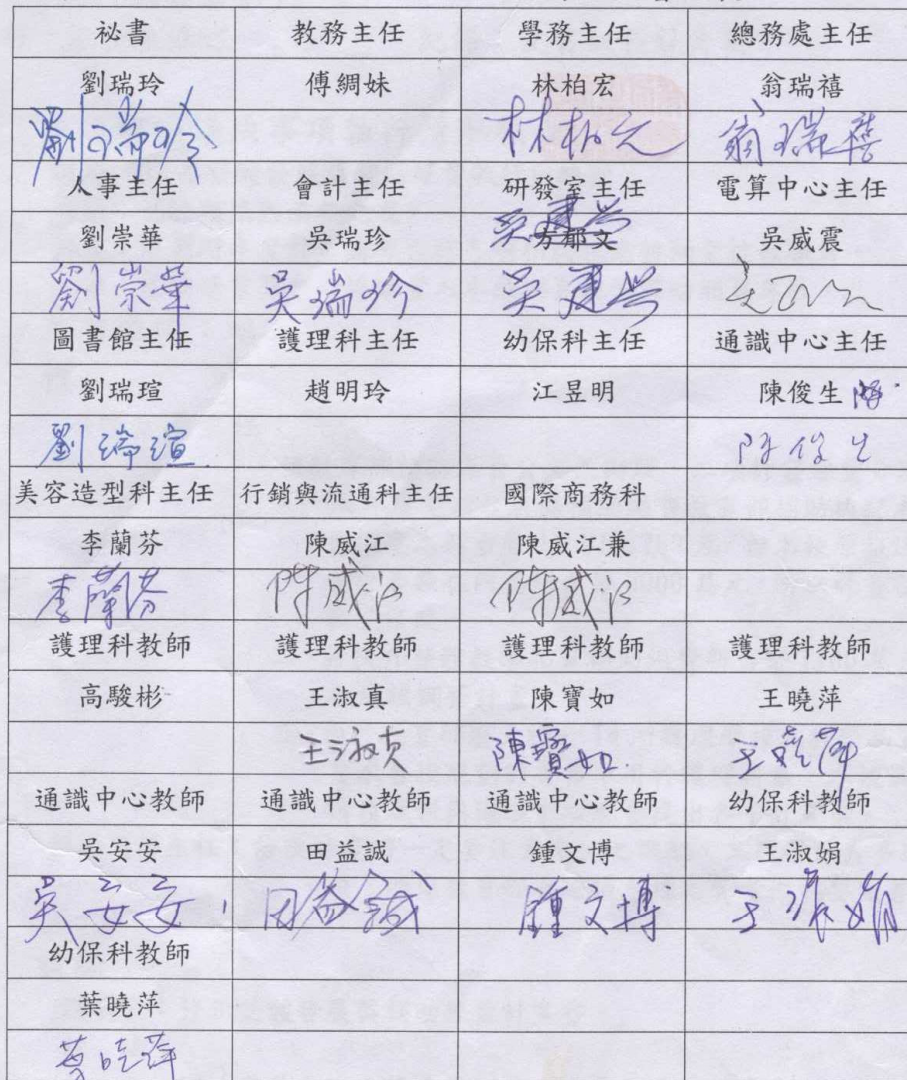 祕書 教務主任 學務主任 總務處主任
劉瑞玲 傅綢妹 林柏宏 翁瑞禧
劉瑞玲 林柏宏 翁瑞禧
人事主任 會計主任 研發室主任 電算中心主任
劉崇華 吳瑞珍 方郁文 吳建興 吳威震
劉崇華 吳瑞珍 吳建興
圖書館主任 護理科主任 幼保科主任 通識中心主任
劉瑞瑄 趙明玲 江昱明 陳俊生
劉瑞瑄 陳俊生
美容造型科主任 行銷與流通科主任 國際商務科
李蘭芬 陳威江 陳威江兼
李蘭芬 陳威江 陳威江
護理科教師 護理科教師 護理科教師 護理科教師
高駿彬 王淑真 陳寶如 王曉萍
王淑真 陳寶如 王曉萍
通識中心教師 通識中心教師 通識中心教師 幼保科教師
吳安安 田益誠 鍾文博 王淑娟
吳安安 田益誠 鍾文博 王淑娟
幼保科教師
葉曉萍
葉曉萍